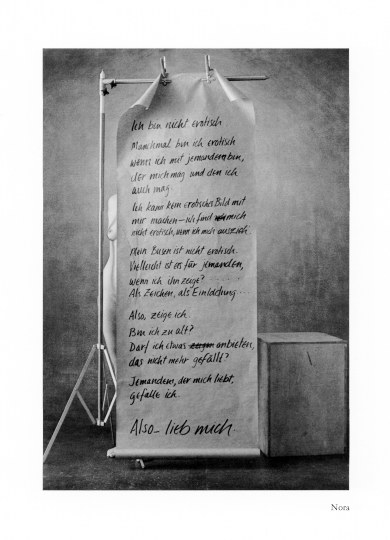 Ich bin nicht erotisch
Manchmal bin ich erotisch
wenn ich mit jemandem bin,
der mich mag und den ich
auch mag.
Ich kann kein erotisches Bild mit
mir machen – ich find mich
nicht erotisch, wenn ich mich auszieh.
Mein Busen ist nicht erotisch.
Vielleicht ist er's für jemanden,
wenn ich ihn zeige?
Als Zeichen, als Einladung.
Also, zeige ich.
Bin ich zu alt?
Darf ich etwas zeigen anbieten,
das nicht mehr gefällt?
Jemandem, der mich liebt,
gefalle ich.
Also – lieb mich.
Nora